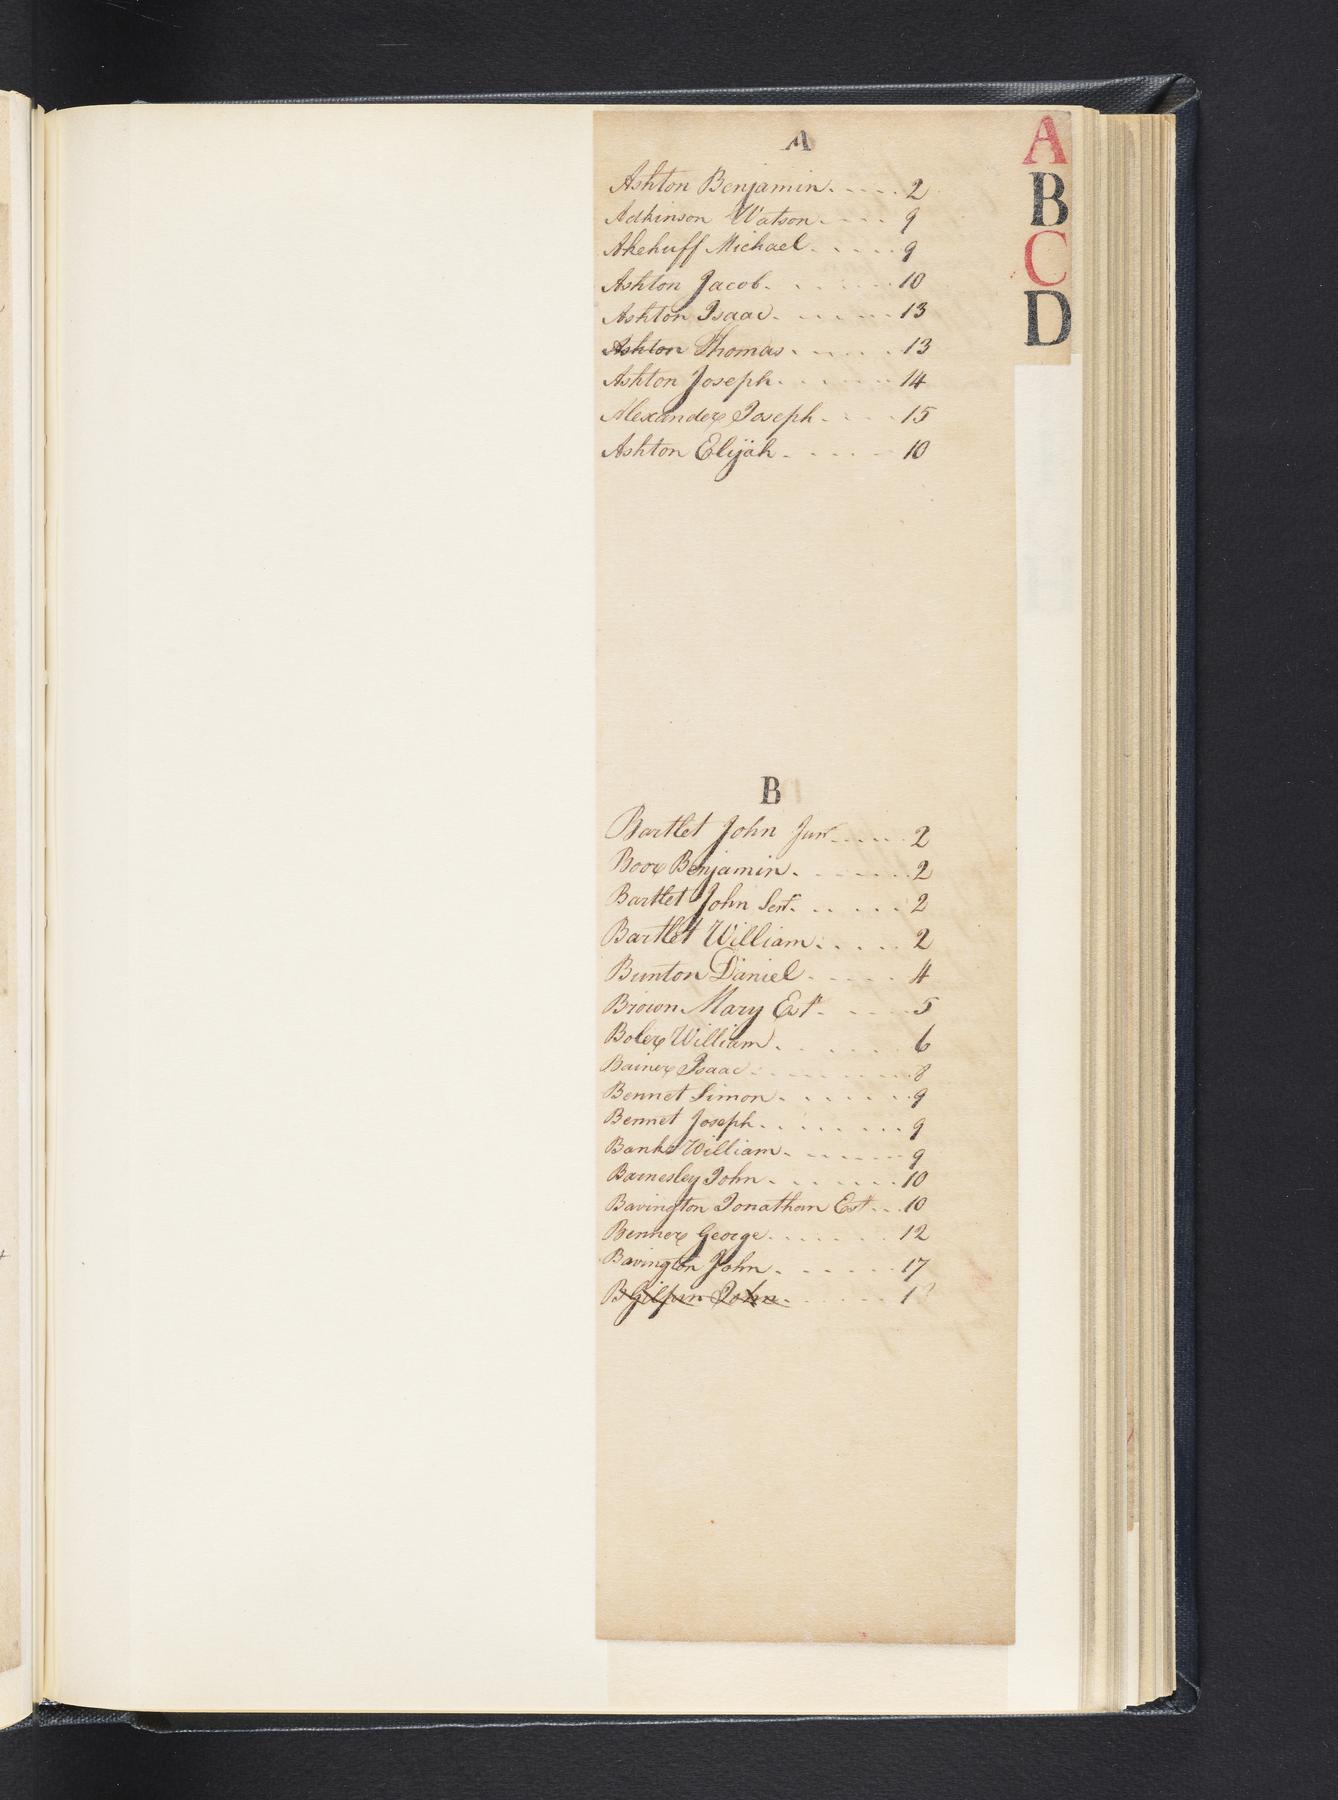 A
Ashton Benjamin 2
Adkinson Watson 9
Akehuff Michael 9
Ashton Jacob 10
Ashton Isaac 13
Ashton Thomas 13
Ashton Joseph 14
Alexander Joseph 15
Ashton Elijah 10
B
Bartlet John Junr 2
Boor Benjamin 2
Bartlet John Senr 2
Bartlet William 2
Bunton Daniel 4
Brown Mary Est 5
Boler William 6
Bainer Isaac 8
Bennet Simon 9
Bennet Joseph 9
Banks William 9
Barnesley John 10
Bavington Jonathan Est 10
Benner George 12
Bavington John 17
B Gilpin John 1
A
B
C
D